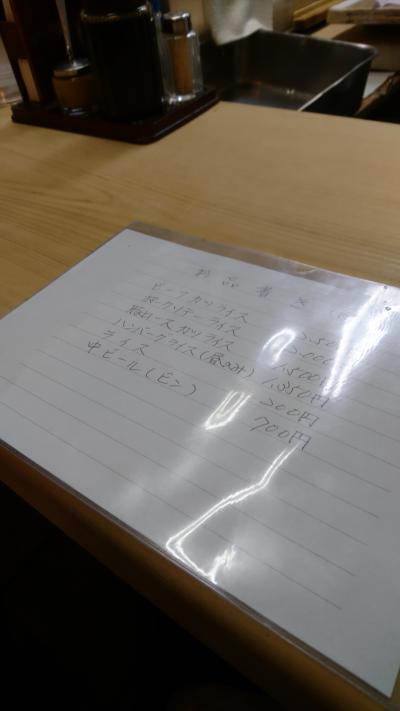 お品書き
ビーフカツライス 2,500
ポークソテーライス 2,000
豚ロースカツライス 1,500円
ハンバーグライス(昼のみ) 1,350円
ライス 200円
中ビール(ビン) 700円